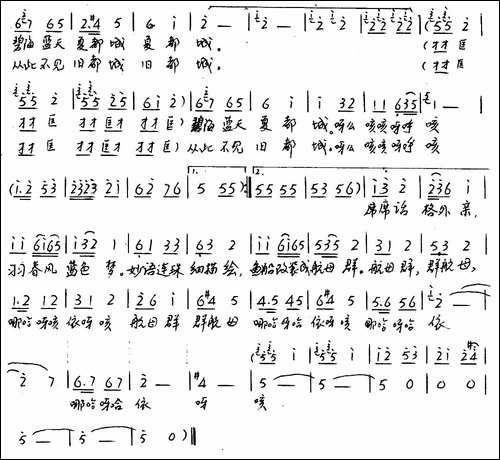 6 7 6 5 | 2 #4 5 | 6 i | 2 — | 2 — | 2 — | 2 2 2 2 | (5 5 2 |
碧海 蓝天 夏都 城 夏 都 城。 (才才 匡
从此 不见 旧都 城 旧 都 城。 (才才 匡
5 5 2 | 5 5 2 5 | 6 i 2) | 6 7 6 5 | 6 i | i 3 2 | 1 1 6 3 5 | i — |
才才 匡 才才 匡才 才才 匡) 碧海 蓝天 夏 都 城。呀么 咳咳呀呼 咳
才才 匡 才才 匡才 才才 匡) 从此 不见 旧 都 城。呀么 咳咳呀呼 咳
(1.2 5 3 | 2 3 2 3 2 1 | 6 2 7 6 | 1. 5 5 5) :| 2. 5 5 5 5 | 5 3 5 6) | i 3 2 | 2 3 6 i |
席席话 格外 亲,
i i 6 i 6 5 | i 3 2 1 | 6 1 3 3 | 6 3 2 | i i 6 i 6 5 | 5 3 5 2 | 3 1 2 | 5 3 2 |
春风 蓝色 梦。妙语连珠 细描 绘, 改装成航母 群。航母 群, 群航 母,
1.2 1 2 | 3 1 2 | 2 6 i | 6 #4 5 | 4.5 4 5 | 6 #4 5 | 5.6 5 6 | 2 — |
哪哈呀咳 依呀 咳 航母 群 群航 母 哪哈呀哈 依呀 咳 哪哈呀哈 依
(5 5 i | 5 5 i | i 2 5 3 | 2 i 2 4 |
2 7 | 6.7 6 7 | 2 — | #4 — | 5 — | 5 — | 5 0 | 0 0 |
哪哈呀哈 依 呀 咳
5 — | 5 — | 5 0) ‖